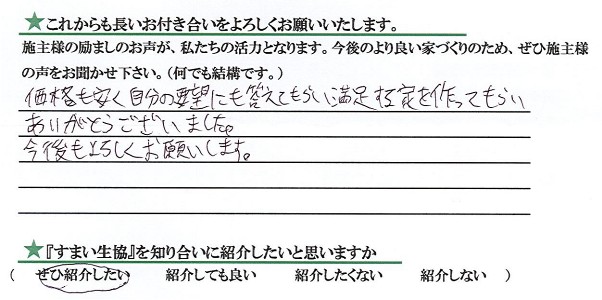 ★これからも長いお付き合いをよろしくお願いいたします。
施主様の励ましのお声が、私たちの活力となります。今後のより良い家づくりのため、ぜひ施主様
の声をお聞かせ下さい。(何でも結構です。)
価格も安く自分の要望にも答えてもらい満足する家を作ってもらい
ありがとうございました。
今後もよろしくお願いします。
★『すまい生協』を知り合いに紹介したいと思いますか
( ぜひ紹介したい 紹介しても良い 紹介したくない 紹介しない )